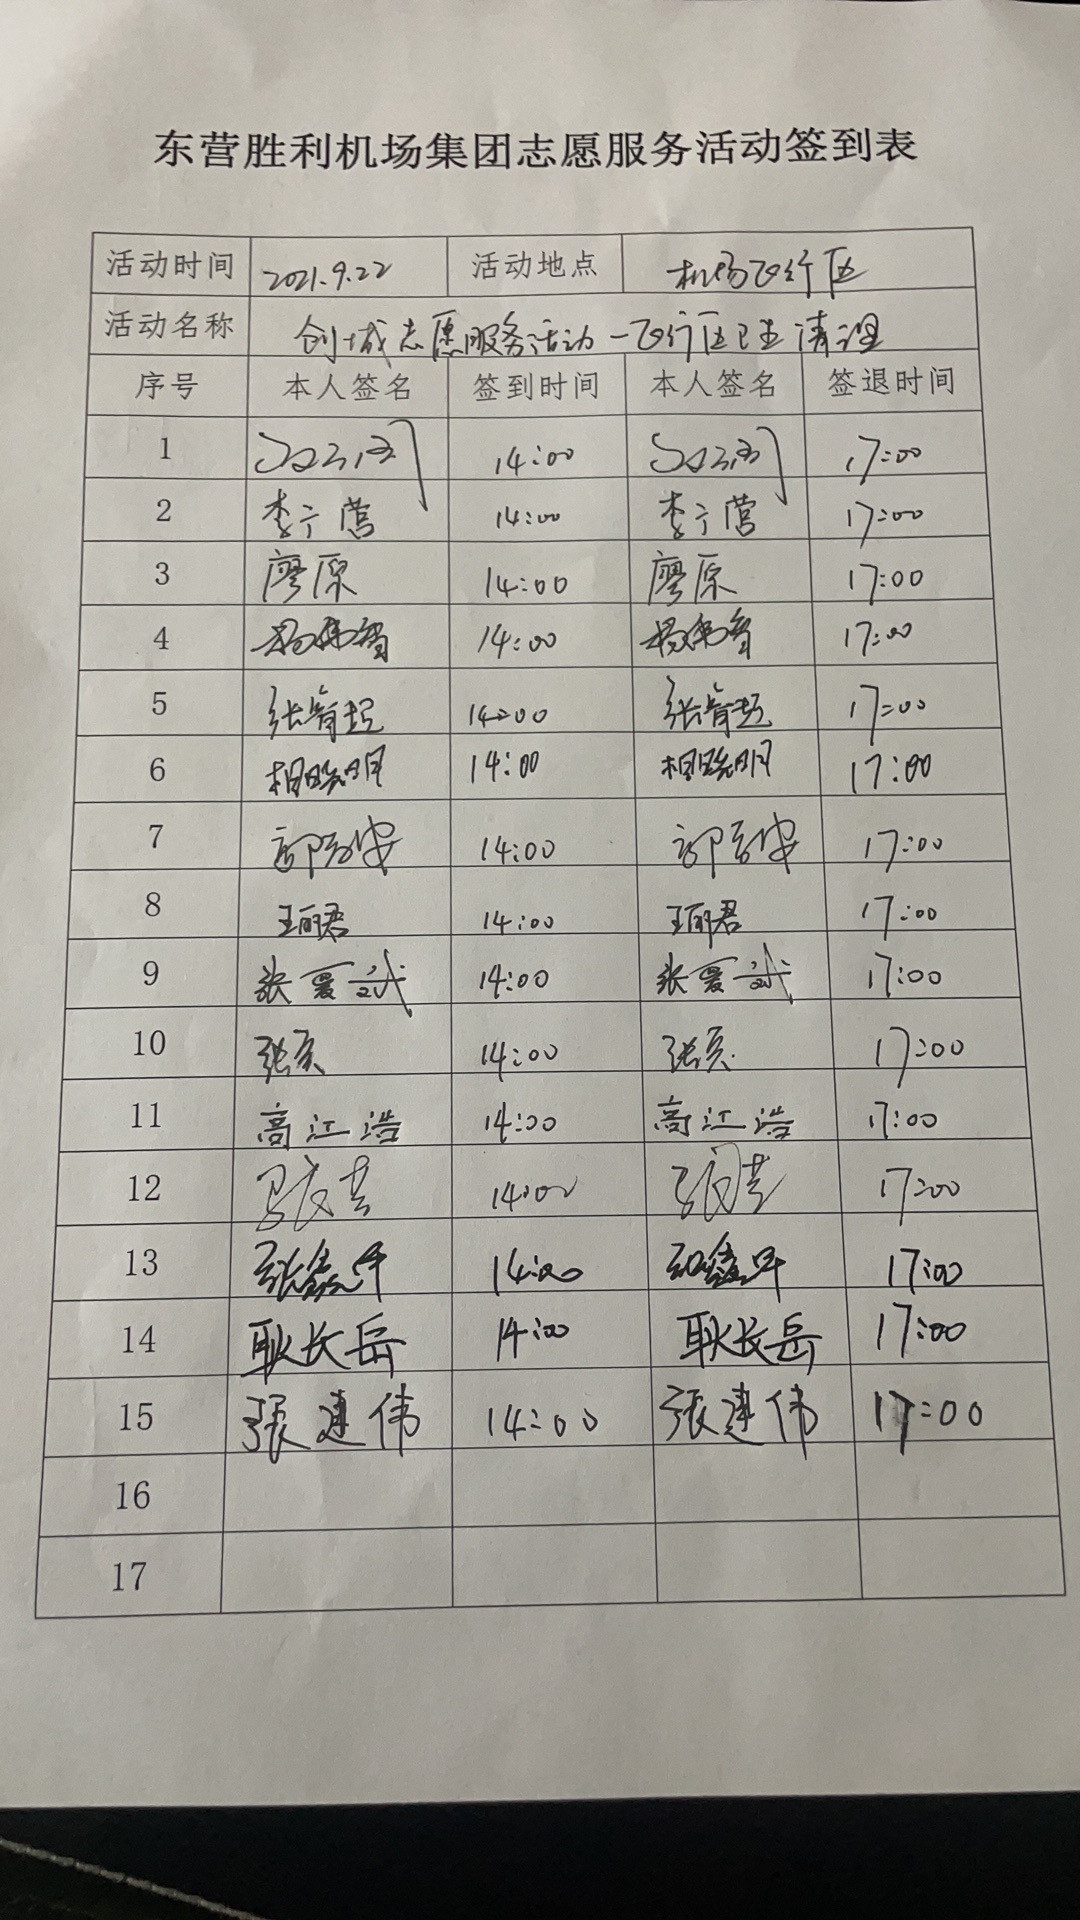 东营胜利机场集团志愿服务活动签到表
活动时间 2021.9.22 活动地点 机场飞行区
活动名称 创城志愿服务活动—飞行区卫生清理
序号 本人签名 签到时间 本人签名 签退时间
1 14:00 17:00
2 李宁营 14:00 李宁营 17:00
3 廖原 14:00 廖原 17:00
4 14:00 17:00
5 14:00 17:00
6 相晓明 14:00 相晓明 17:00
7 14:00 17:00
8 王丽君 14:00 王丽君 17:00
9 张爱斌 14:00 张爱斌 17:00
10 14:00 17:00
11 高江浩 14:00 高江浩 17:00
12 14:00 17:00
13 14:00 17:00
14 耿长岳 14:00 耿长岳 17:00
15 張建伟 14:00 張建伟 17:00
16
17